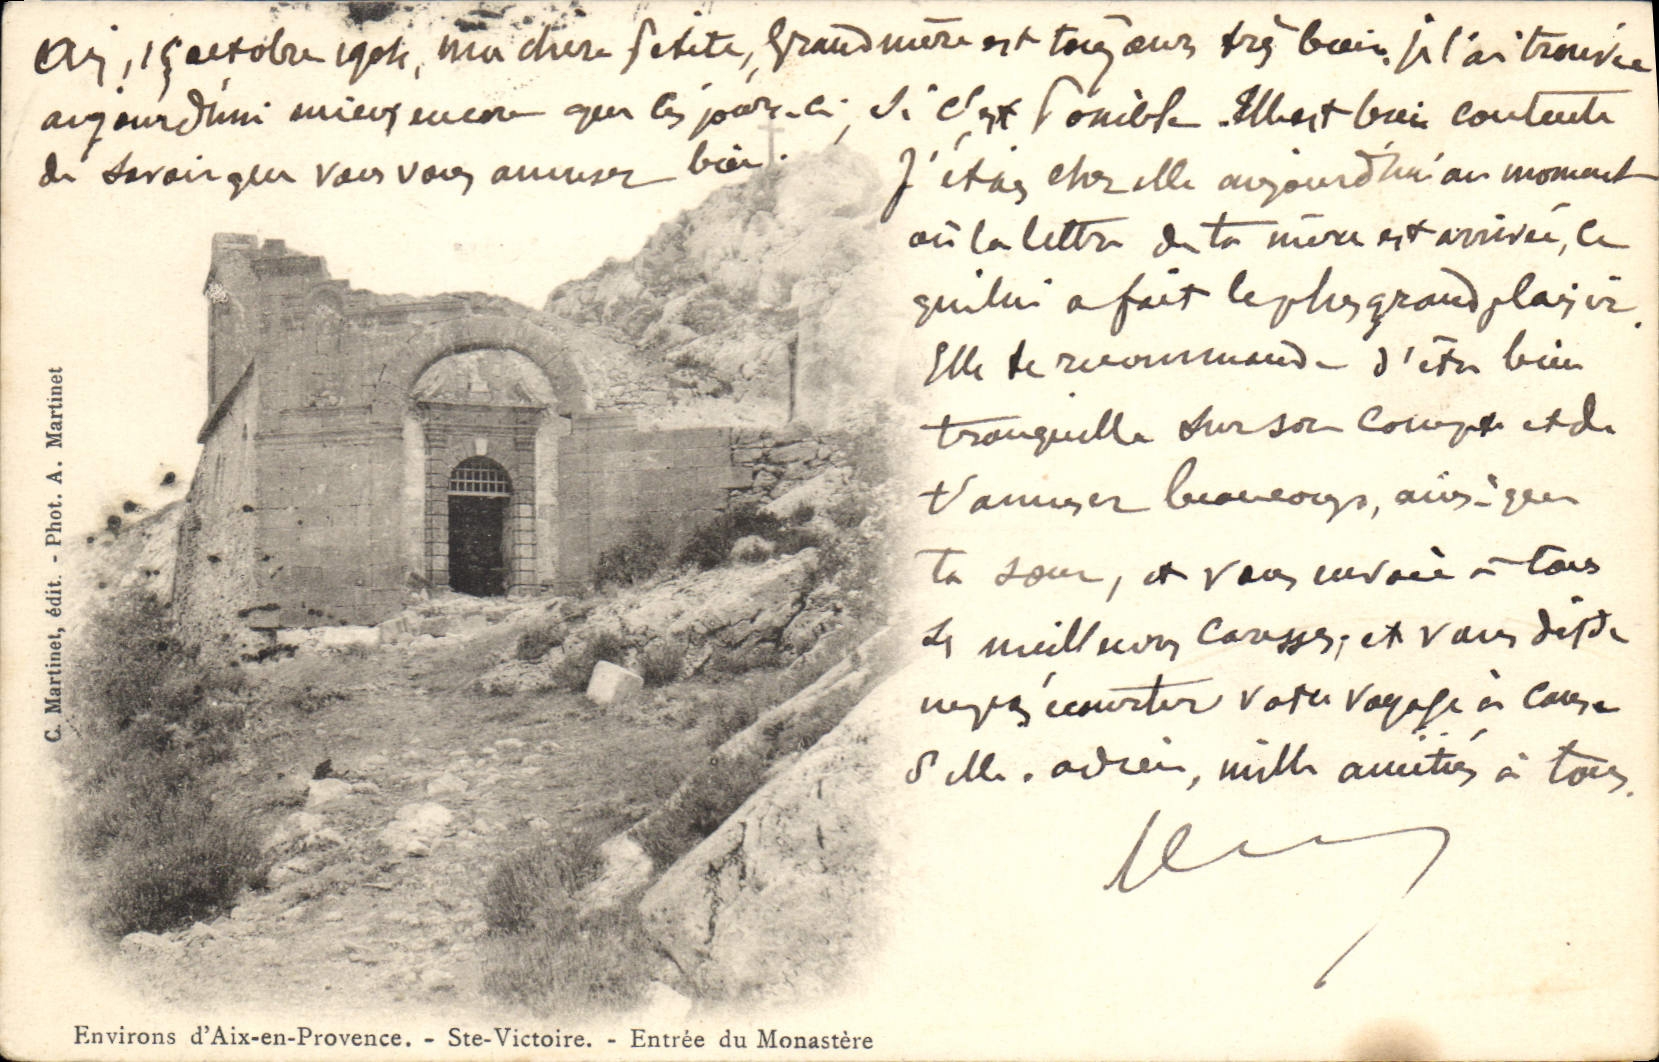 Aix, 15 octobre 1904, ma chère Petite, Grand mère est toujours très bien. je l'ai trouvée
aujourd'hui mieux encore que ces jours-ci, si c'est Possible. Elle est bien contente
de savoir que vous vous amusez bien.
J'étais chez elle aujourd'hui au moment
où la lettre de ta mère est arrivée, ce
qui lui a fait le plus grand plaisir.
Elle te recommande d'être bien
tranquille sur son compte et de
t'amuser beaucoup, ainsi que
ta soeur, et vous envoie à tous
ses meilleures caresses; et vous dit de
ne pas écourter votre voyage à cause
d'elle. adieu, mille amitiés à tous.
C. Martinet, édit. - Phot. A. Martinet
Environs d'Aix-en-Provence. - Ste-Victoire. - Entrée du Monastère